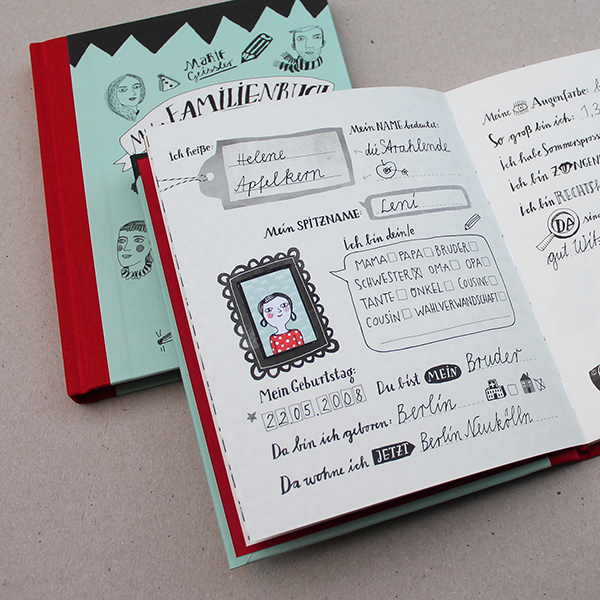 MARIE
Geissler
FAMILIENBUCH
Ich heiße:
Helene
Apfelkern
Mein NAME bedeutet:
die Strahlende
Mein SPITZNAME:
Leni
Ich bin dein/e
MAMA PAPA BRUDER
SCHWESTER OMA OPA
TANTE ONKEL COUSINE
COUSIN WAHLVERWANDSCHAFT
Mein Geburtstag:
22.05.2008
Du bist MEIN Bruder
Da bin ich geboren: Berlin
Da wohne ich JETZT Berlin Neukölln
Meine Augenfarbe:
So groß bin ich: 1,3
Ich habe Sommerspross
Ich bin
Ich bin RECHTSH
DA sin
gut Witz